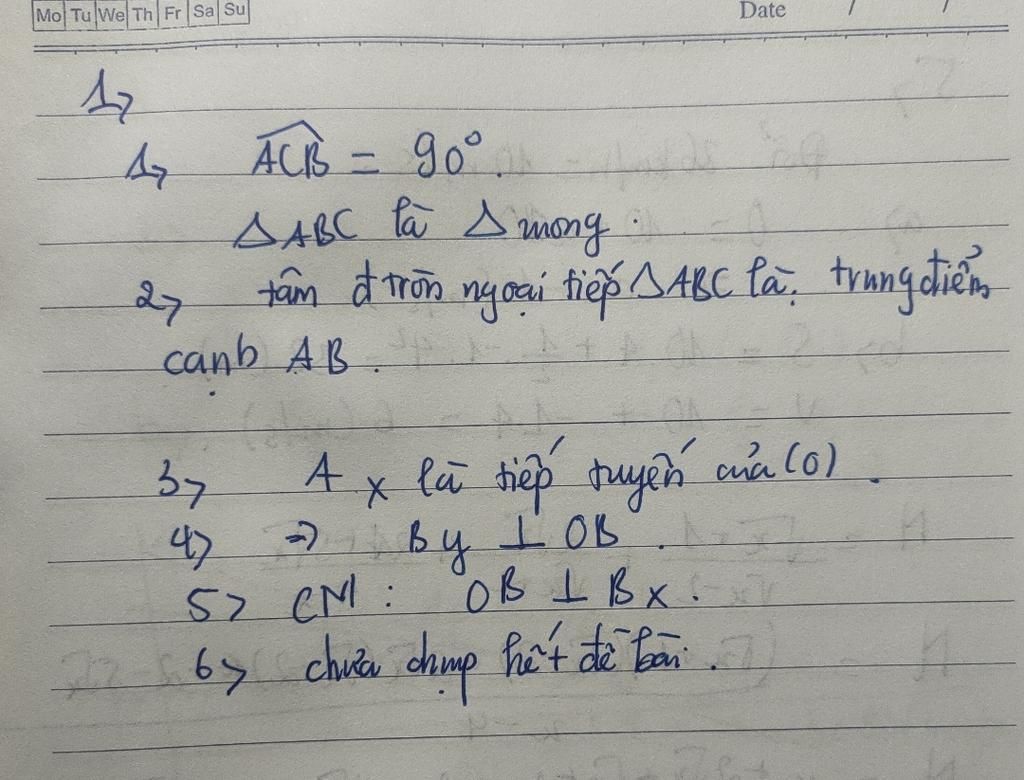 Mo Tu We Th Fr Sa Su Date / /
1>
1> ACB = 90°.
△ABC là △ vuông.
2> tâm đ tròn ngoại tiếp △ABC là. trung điểm
cạnh AB.
3> Ax là tiếp tuyến của (O).
4> => By ⊥ OB.
5> CM: OB ⊥ Bx.
6> chưa chụp hết đề bài.